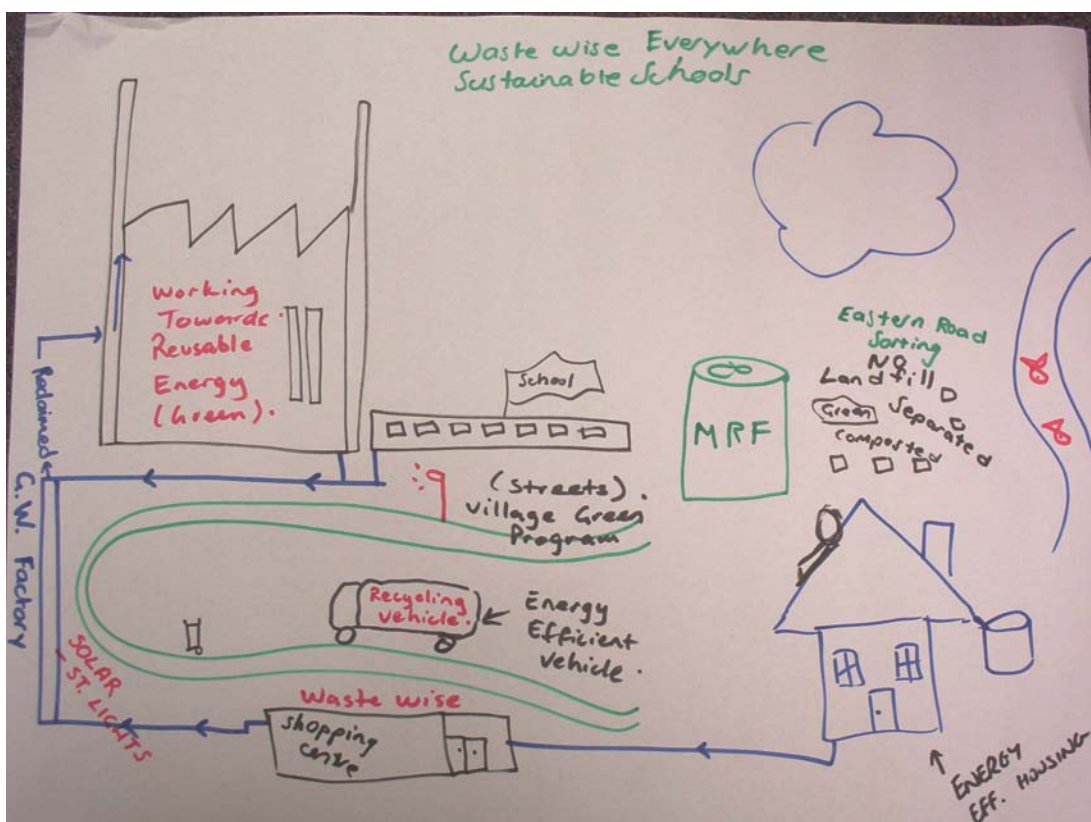 Waste wise Everywhere
Sustainable Schools
Working
Towards
Reusable
Energy
(Green).
School
MRF
Eastern Road
Sorting
NO
Landfill
Green
Separated
Composted
Reclaimed
G.W. Factory
(Streets).
Village Green
Program
Recycling
Vehicle.
Energy
Efficient
Vehicle.
SOLAR
ST. LIGHTS
Waste wise
Shopping
centre
ENERGY
EFF. HOUSING